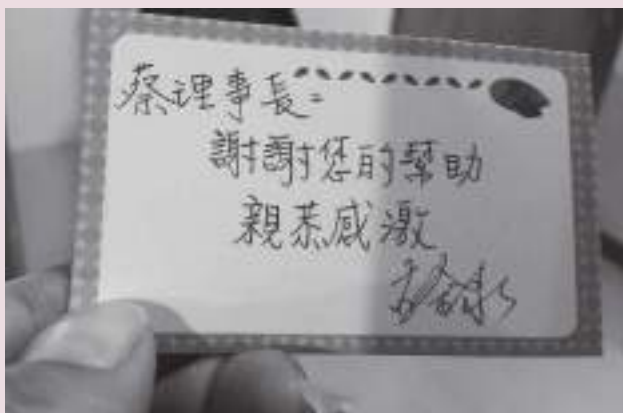 蔡理事長：
謝謝您的幫助
親恭感激